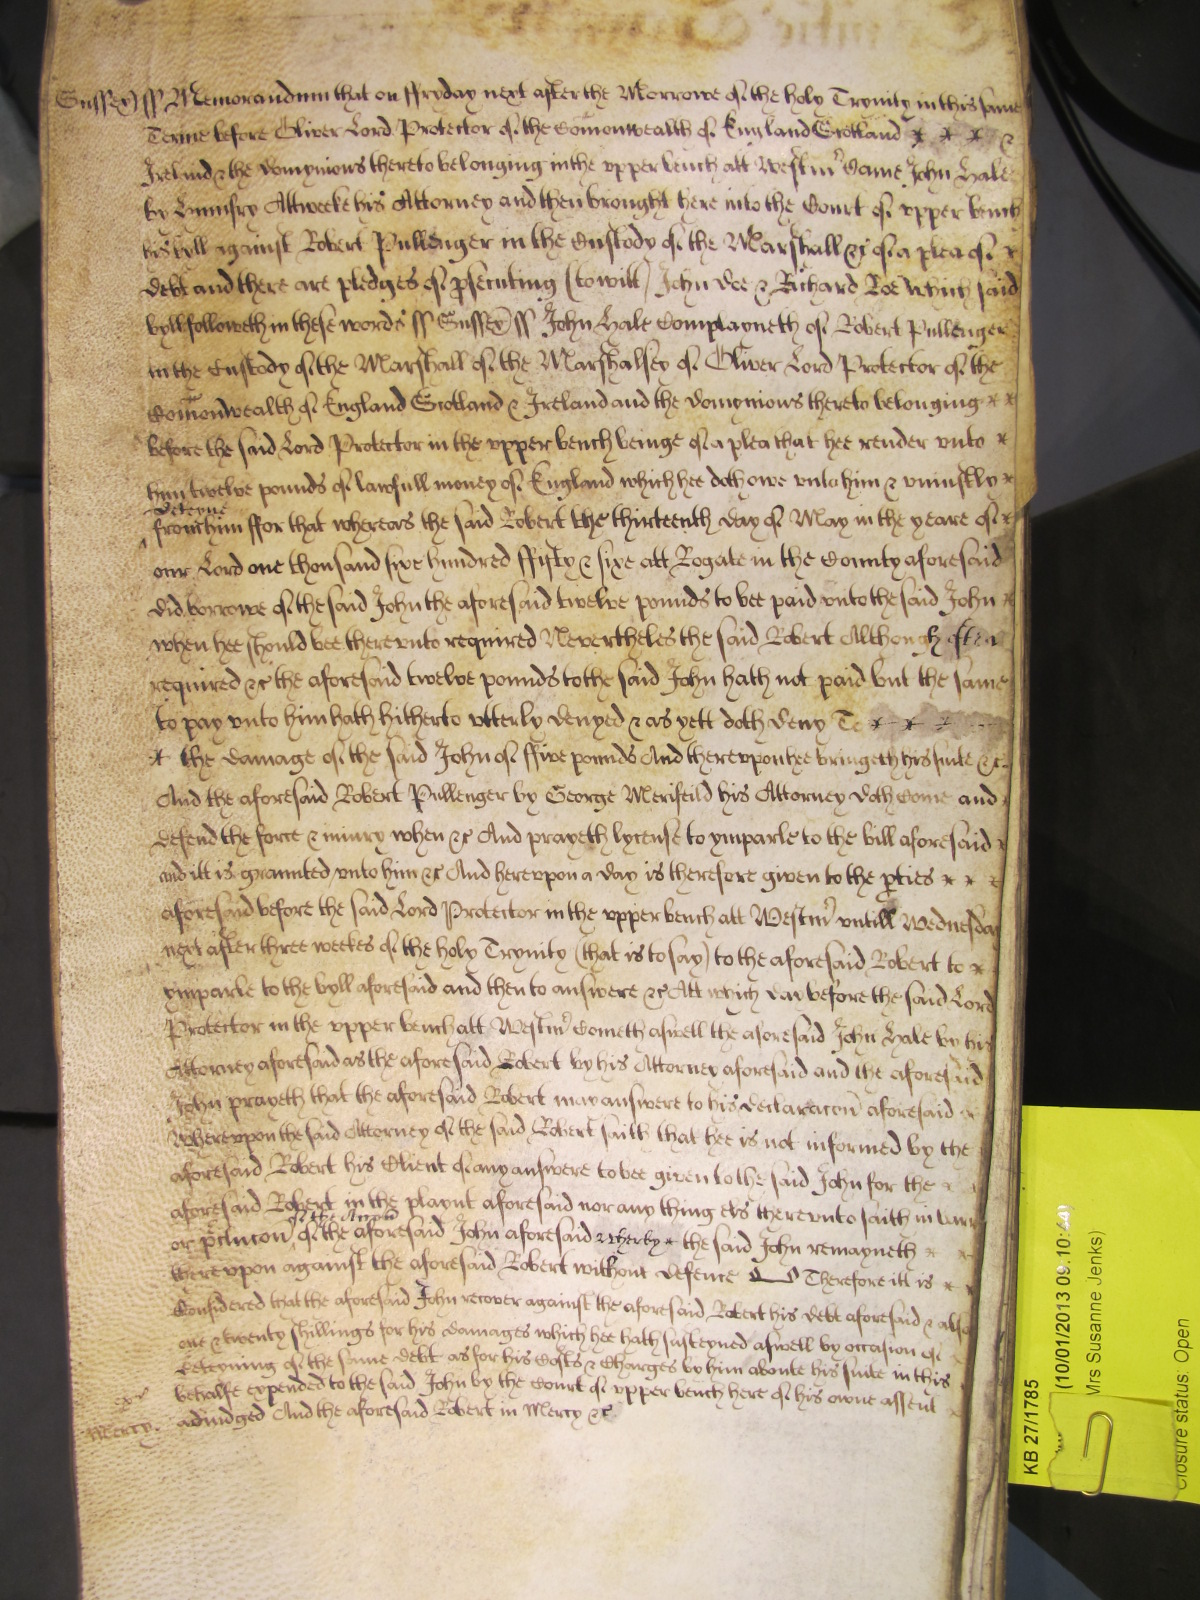 Sussex) ss Memorandum that on ffryday next after the Morrowe of the holy Trynity in this same
Terme before Oliver Lord Protector of the Comonwealth of England Scotland &
Irelind & the domynions thereto belonging in the vpper bench att Westmr Came John Hale
by Humfry Attweeke his Attorney and then brought here into the Court of vpper bench
his byll against Robert Pullenger in the Custody of the Marshall &c of a plea of
debt and there are pledges of psecuting (to witt) John Doe & Richard Roe Which said
byll followeth in these words ss Sussex) ss John Hale Complayneth of Robert Pullenger
in the Custody of the Marshall of the Marshalsey of Oliver Lord Protector of the
Comonwealth of England Scotland & Ireland and the domynions thereto belonging
before the said Lord Protector in the vpper bench beinge of a plea that hee render vnto
him twelve pounds of lawfull money of England which hee doth owe vnto him & vniustly
deteyne
from him ffor that whereas the said Robert the thirteenth day of May in the yeare of
our Lord one thousand sixe hundred ffifty & sixe att Rogate in the County aforesaid
did borrowe of the said John the aforesaid twelve pounds to bee paid vnto the said John
when hee should bee therevnto required Nevertheles the said Robert Although often
required &c the aforesaid twelve pounds to the said John hath not paid but the same
to pay vnto him hath hitherto vtterly denyed & as yett doth deny To
the damage of the said John of ffive pounds And therevpon hee bringeth his suite &c
And the aforesaid Robert Pullenger by George Merifeild his Attorney doth Come and
defend the force & iniury when &c And prayeth lycense to ymparle to the bill aforesaid
and itt is graunted vnto him &c And herevpon a day is therefore given to the pties
aforesaid before the said Lord Protector in the vpper bench att Westmr vntill Wednesday
next after three weekes of the holy Trynity (that is to say) to the aforesaid Robert to
ymparle to the byll aforesaid and then to answere &c Att which day before the said Lord
Protector in the vpper bench att Westmr Cometh aswell the aforesaid John Hale by his
Attorney aforesaid as the aforesaid Robert by his Attorney aforesaid and the aforesaid
John prayeth that the aforesaid Robert may answere to his declaracon aforesaid
Wherevpon the said Attorney of the said Robert saith that hee is not informed by the
aforesaid Robert his Client of any answere to bee given to the said John for the
aforesaid Robert in the playnt aforesaid nor any thing els therevnto saith in barr
or pclucon of the aforesaid John aforesaid wherby the said John remayneth
therevpon against the aforesaid Robert without defence Therefore itt is
Considered that the aforesaid John recover against the aforesaid Robert his debt aforesaid & also
one & twenty shillings for his damages which hee hath susteyned aswell by occasion of
deteyning of the same debt as for his Costs & Charges by him aboute his suite in this
behalfe expended to the said John by the Court of vpper bench here of his owne assent
adiudged And the aforesaid Robert in Mercy &c
Mercy.
KB 27/1785
(10/01/2013 09:10:44)
Mrs Susanne Jenks)
Closure status: Open